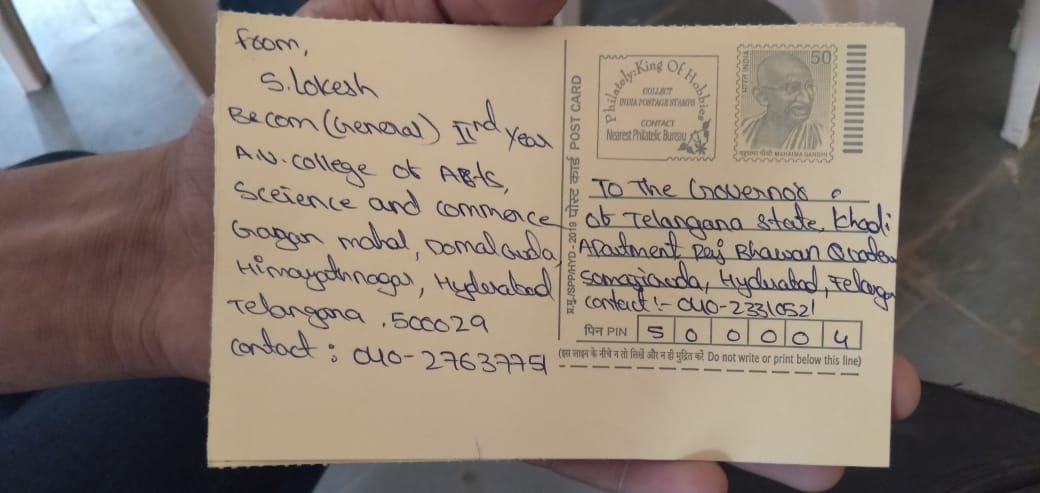 From,
S. Lokesh
Becom (General) IIrd Year
A.V. college of Arts,
Sceience and commerce
Gagan mahal, Domalguda,
Himayathnagar, Hyderabad
Telangana . 500029
contact : 040-27637751
स.मु./SPP/HYD - 2019 पोस्ट कार्ड POST CARD
Philately: King Of Hobbies
COLLECT
INDIA POSTAGE STAMPS
CONTACT
Nearest Philatelic Bureau
भारत INDIA
50
महात्मा गाँधी MAHATMA GANDHI
To The Governor
of Telangana State, Khadi
Apartment Raj Bhawan Quarters
Somajiguda, Hyderabad, Telangana
contact :- 040-23310521
पिन PIN 5 0 0 0 0 4
(इस लाइन के नीचे न तो लिखें और न ही मुद्रित करें Do not write or print below this line)